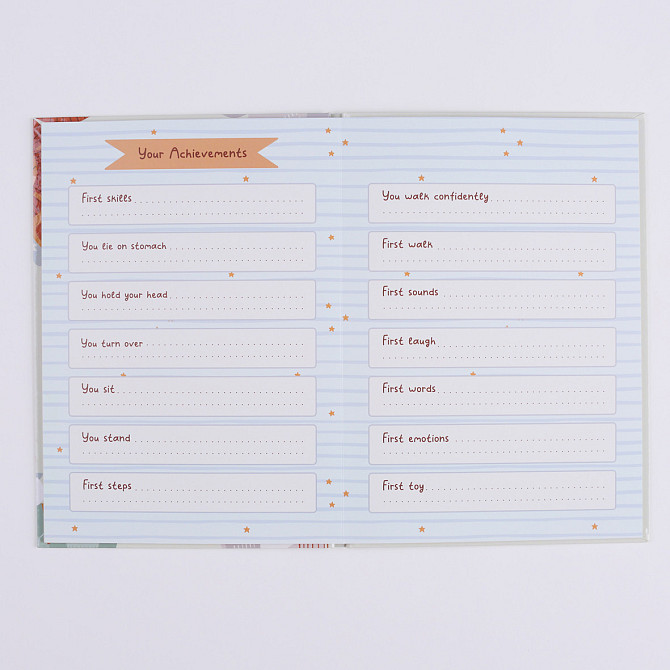 Your Achievements
First skills
You lie on stomach
You hold your head
You turn over
You sit
You stand
First steps
You walk confidently
First walk
First sounds
First laugh
First words
First emotions
First toy